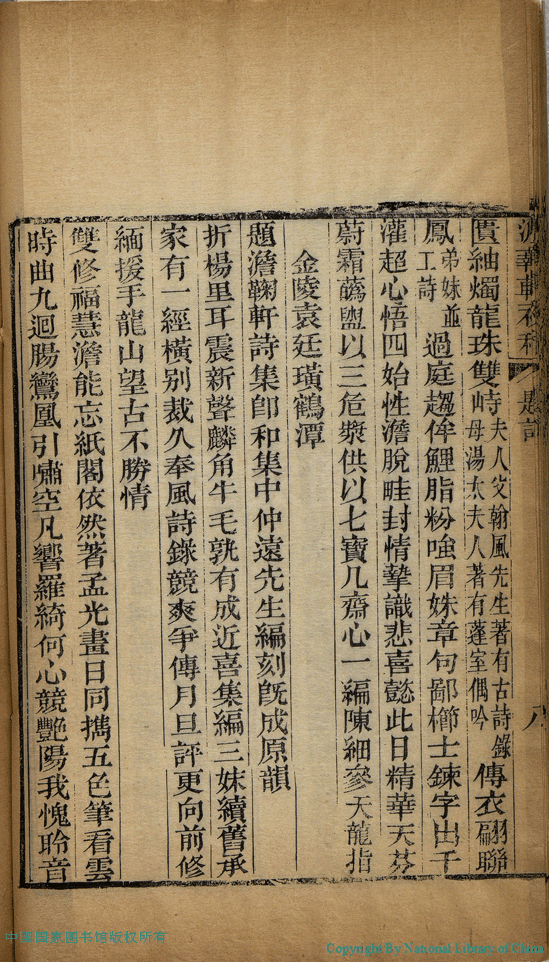 澹菊軒初稿 題詞 八
匱紬燭龍珠雙峙夫人父翰風先生著有古詩錄母湯太夫人著有蓬室偶吟傳衣翮聯
鳳弟妹並工詩過庭趨侔鯉脂粉嗤眉姝章句鄙櫛士鍊字出千
灌超心悟四始性澹脫畦封情摯識悲喜懿此日精華天芬
蔚霜蘤盥以三危漿供以七寶几齋心一編陳細參天龍指
金陵袁廷璜鶴潭
題澹鞠軒詩集卽和集中仲遠先生編刻旣成原韻
折楊里耳震新聲麟角牛毛孰有成近喜集編三妹續舊承
家有一經橫別裁久奉風詩錄競爽爭傳月旦評更向前修
緬援手龍山望古不勝情
雙修福慧澹能忘紙閣依然著孟光晝日同擕五色筆看雲
時曲九迴腸鸞凰引嘯空凡響羅綺何心競艷陽我愧聆音
中國國家图书馆版权所有
Copyright By National Library of China